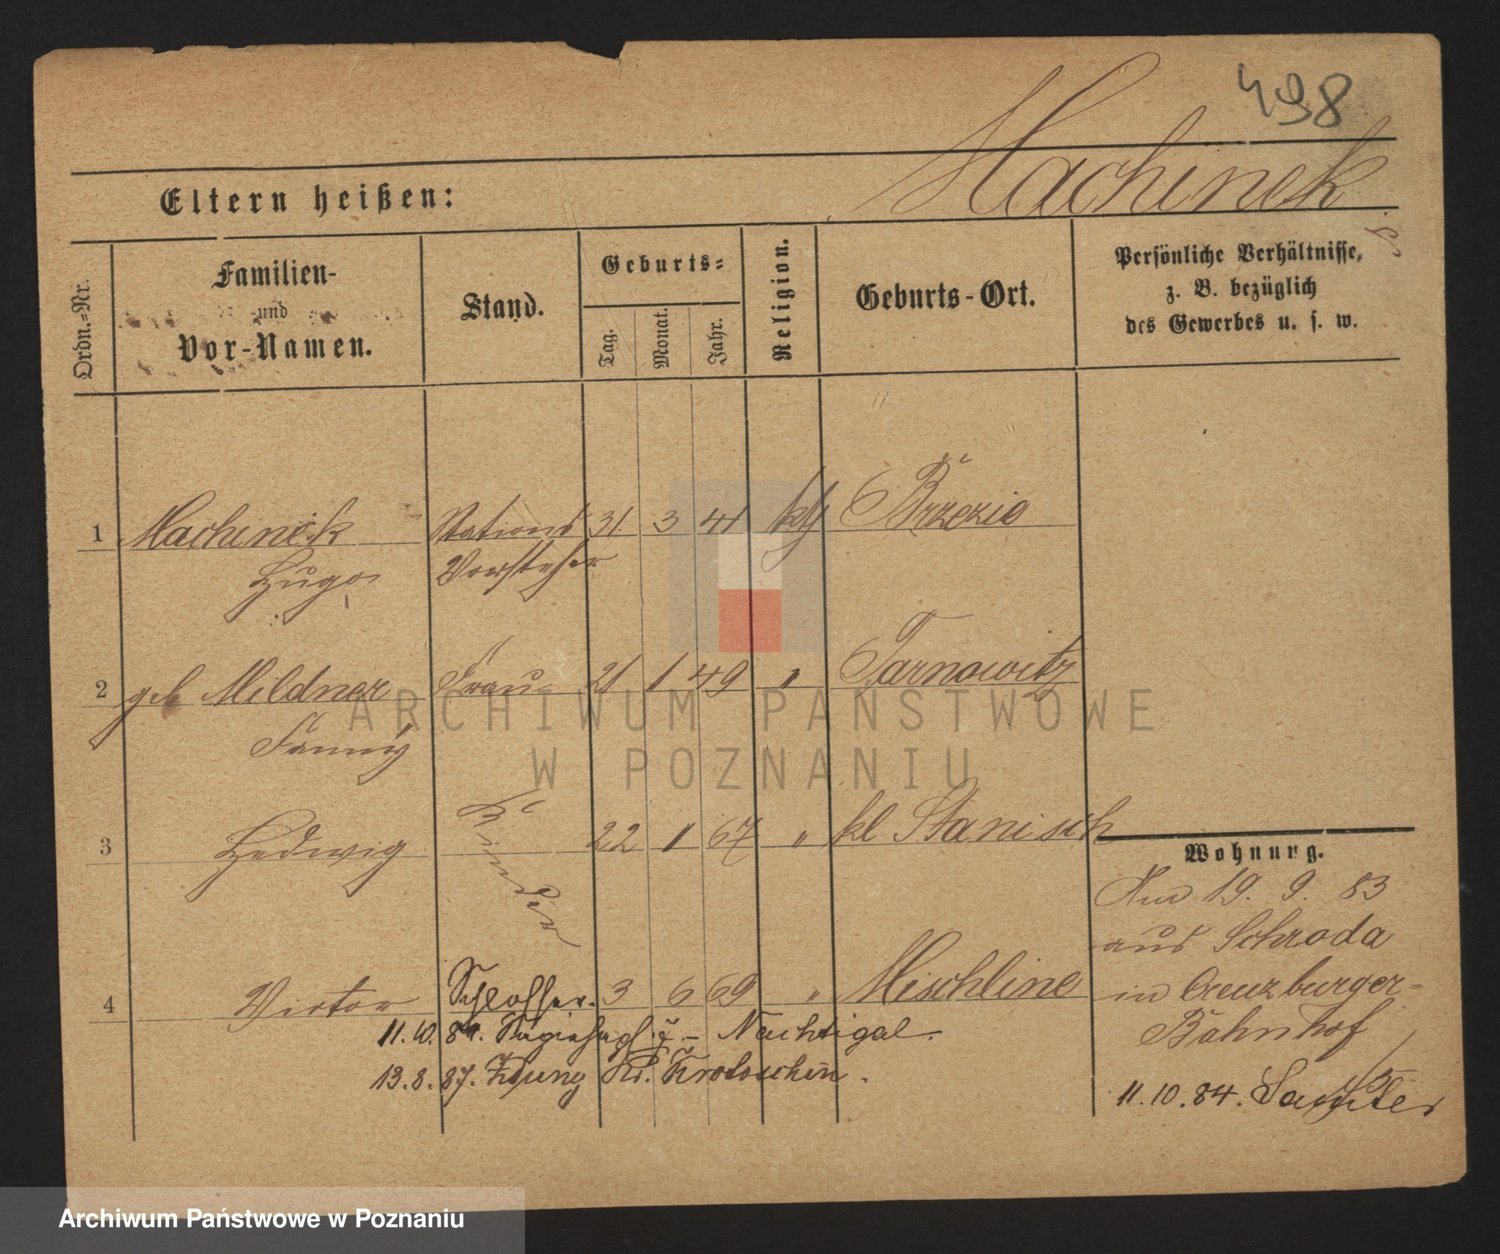 498
Machinek
Eltern heißen:
Ordn.-Nr.
Familien-
und
Vor-Namen.
Stand.
Geburts-
Tag.
Monat.
Jahr.
Religion.
Geburts-Ort.
Persönliche Verhältnisse,
z. B. bezüglich
des Gewerbes u. s. w.
1 Machinek Stations 31. 3 41 kth Brzezie
Hugo Vorsteher
2 geb Mildner Frau 21 1 49 " Tarnowitz
Fanny
Kinder
3 Hedwig 22 1 67 " kl Stanisch
4 Victor Schlosser. 3 6 69 " Mischline
11.10.84. Nachtigal.
13.8.87. Zduny Kr. Krotoschin.
Wohnung.
19. 9. 83
aus Schroda
in Creuzburger-
Bahnhof
11.10.84. Samter
ARCHIWUM PAŃSTWOWE
W POZNANIU
Archiwum Państwowe w Poznaniu